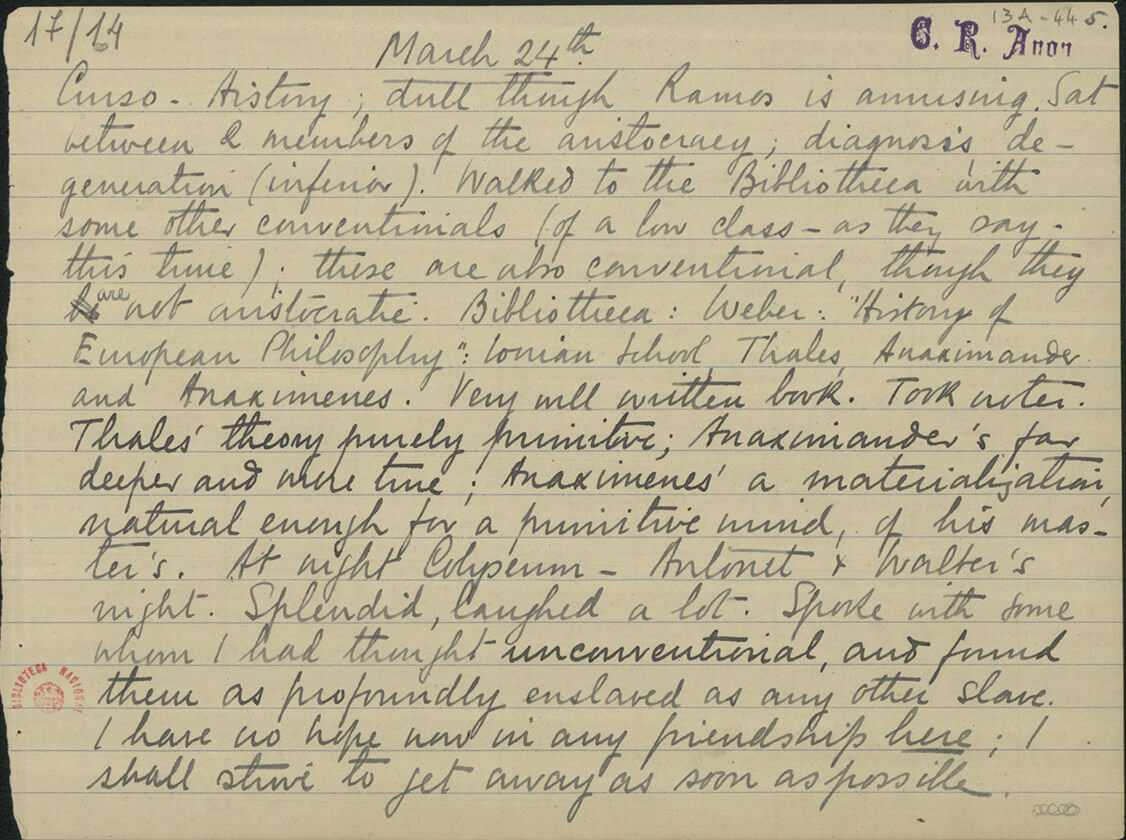 17/14
13A-44 5.
C. R. Anon
March 24th
Curso - History; dull though Ramos is amusing. Sat
between 2 members of the aristocracy; diagnosis de-
generation (inferior). Walked to the Bibliotheca with
some other conventionals (of a low class - as they say -
this time); these are also conventional, though they
are not aristocratic. Bibliotheca: Weber: "History of
European Philosophy": Ionian School, Thales, Anaximander
and Anaximenes. Very well written book. Took notes.
Thales' theory purely primitive; Anaximander's far
deeper and more true; Anaximenes' a materialization,
natural enough for a primitive mind, of his mas-
ter's. At night Colyseum - Antonet & Walter's
night. Splendid, laughed a lot. Spoke with some
whom I had thought unconventional, and found
them as profoundly enslaved as any other slave.
I have no hope now in any friendship here; I
shall strive to get away as soon as possible.
BIBLIOTECA NACIONAL